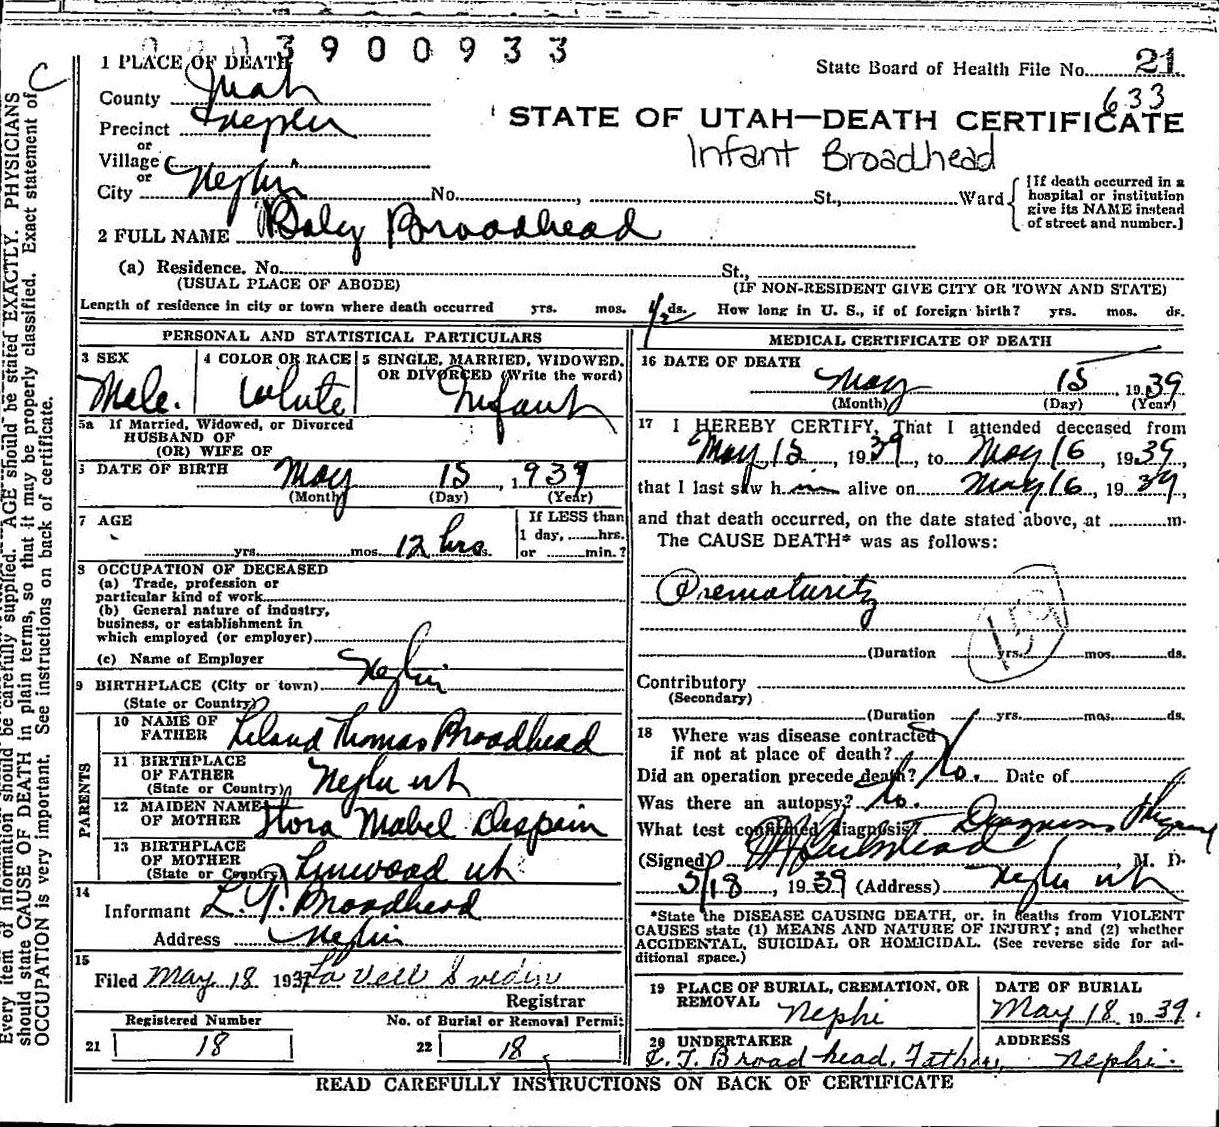 3900933
1 PLACE OF DEATH
State Board of Health File No. 21
633
County Juab
STATE OF UTAH—DEATH CERTIFICATE
Precinct Nephi
Infant Broadhead
or
Village
or
City Nephi No. , St., Ward
[If death occurred in a hospital or institution give its NAME instead of street and number.]
2 FULL NAME Baby Broadhead
(a) Residence. No. St.,
(USUAL PLACE OF ABODE) (IF NON-RESIDENT GIVE CITY OR TOWN AND STATE)
Length of residence in city or town where death occurred yrs. mos. 1/2 ds. How long in U. S., if of foreign birth? yrs. mos. ds.
PERSONAL AND STATISTICAL PARTICULARS
3 SEX Male.
4 COLOR OR RACE White
5 SINGLE, MARRIED, WIDOWED, OR DIVORCED (Write the word) Infant
5a If Married, Widowed, or Divorced
HUSBAND OF
(OR) WIFE OF
DATE OF BIRTH May 15, 1939
(Month) (Day) (Year)
7 AGE
yrs. mos. 12 hrs.
If LESS than
1 day, hrs.
or min.?
8 OCCUPATION OF DECEASED
(a) Trade, profession or
particular kind of work
(b) General nature of industry,
business, or establishment in
which employed (or employer)
(c) Name of Employer
9 BIRTHPLACE (City or town) Nephi
(State or Country)
PARENTS
10 NAME OF FATHER Leland Thomas Broadhead
11 BIRTHPLACE OF FATHER (State or Country) Nephi ut
12 MAIDEN NAME OF MOTHER Flora Mabel Despain
13 BIRTHPLACE OF MOTHER (State or Country) Linwood ut
14
Informant L. T. Broadhead
Address Nephi
15
Filed May 18 1939 La Vell Sveden
Registrar
Registered Number
21 18
No. of Burial or Removal Permit
22 18
MEDICAL CERTIFICATE OF DEATH
16 DATE OF DEATH
May 15, 1939
(Month) (Day) (Year)
17 I HEREBY CERTIFY, That I attended deceased from
May 15, 1939, to May 16, 1939,
that I last saw him alive on May 16, 1939,
and that death occurred, on the date stated above, at m.
The CAUSE DEATH* was as follows:
Prematurity
159
(Duration yrs. mos. ds.
Contributory
(Secondary)
(Duration yrs. mos. ds.
18 Where was disease contracted
if not at place of death?
Did an operation precede death? No. Date of
Was there an autopsy? No.
What test confirmed diagnosis?
(Signed) , M. D.
5/18, 1939 (Address) Nephi ut
*State the DISEASE CAUSING DEATH, or, in deaths from VIOLENT
CAUSES state (1) MEANS AND NATURE OF INJURY; and (2) whether
ACCIDENTAL, SUICIDAL OR HOMICIDAL. (See reverse side for ad-
ditional space.)
19 PLACE OF BURIAL, CREMATION, OR REMOVAL Nephi
DATE OF BURIAL
May 18 1939.
20 UNDERTAKER
L. T. Broadhead, Father,
ADDRESS
Nephi.
READ CAREFULLY INSTRUCTIONS ON BACK OF CERTIFICATE
C
Every item of information should be carefully supplied. AGE should be stated EXACTLY. PHYSICIANS
should state CAUSE OF DEATH in plain terms, so that it may be properly classified. Exact statement of
OCCUPATION is very important. See instructions on back of certificate.